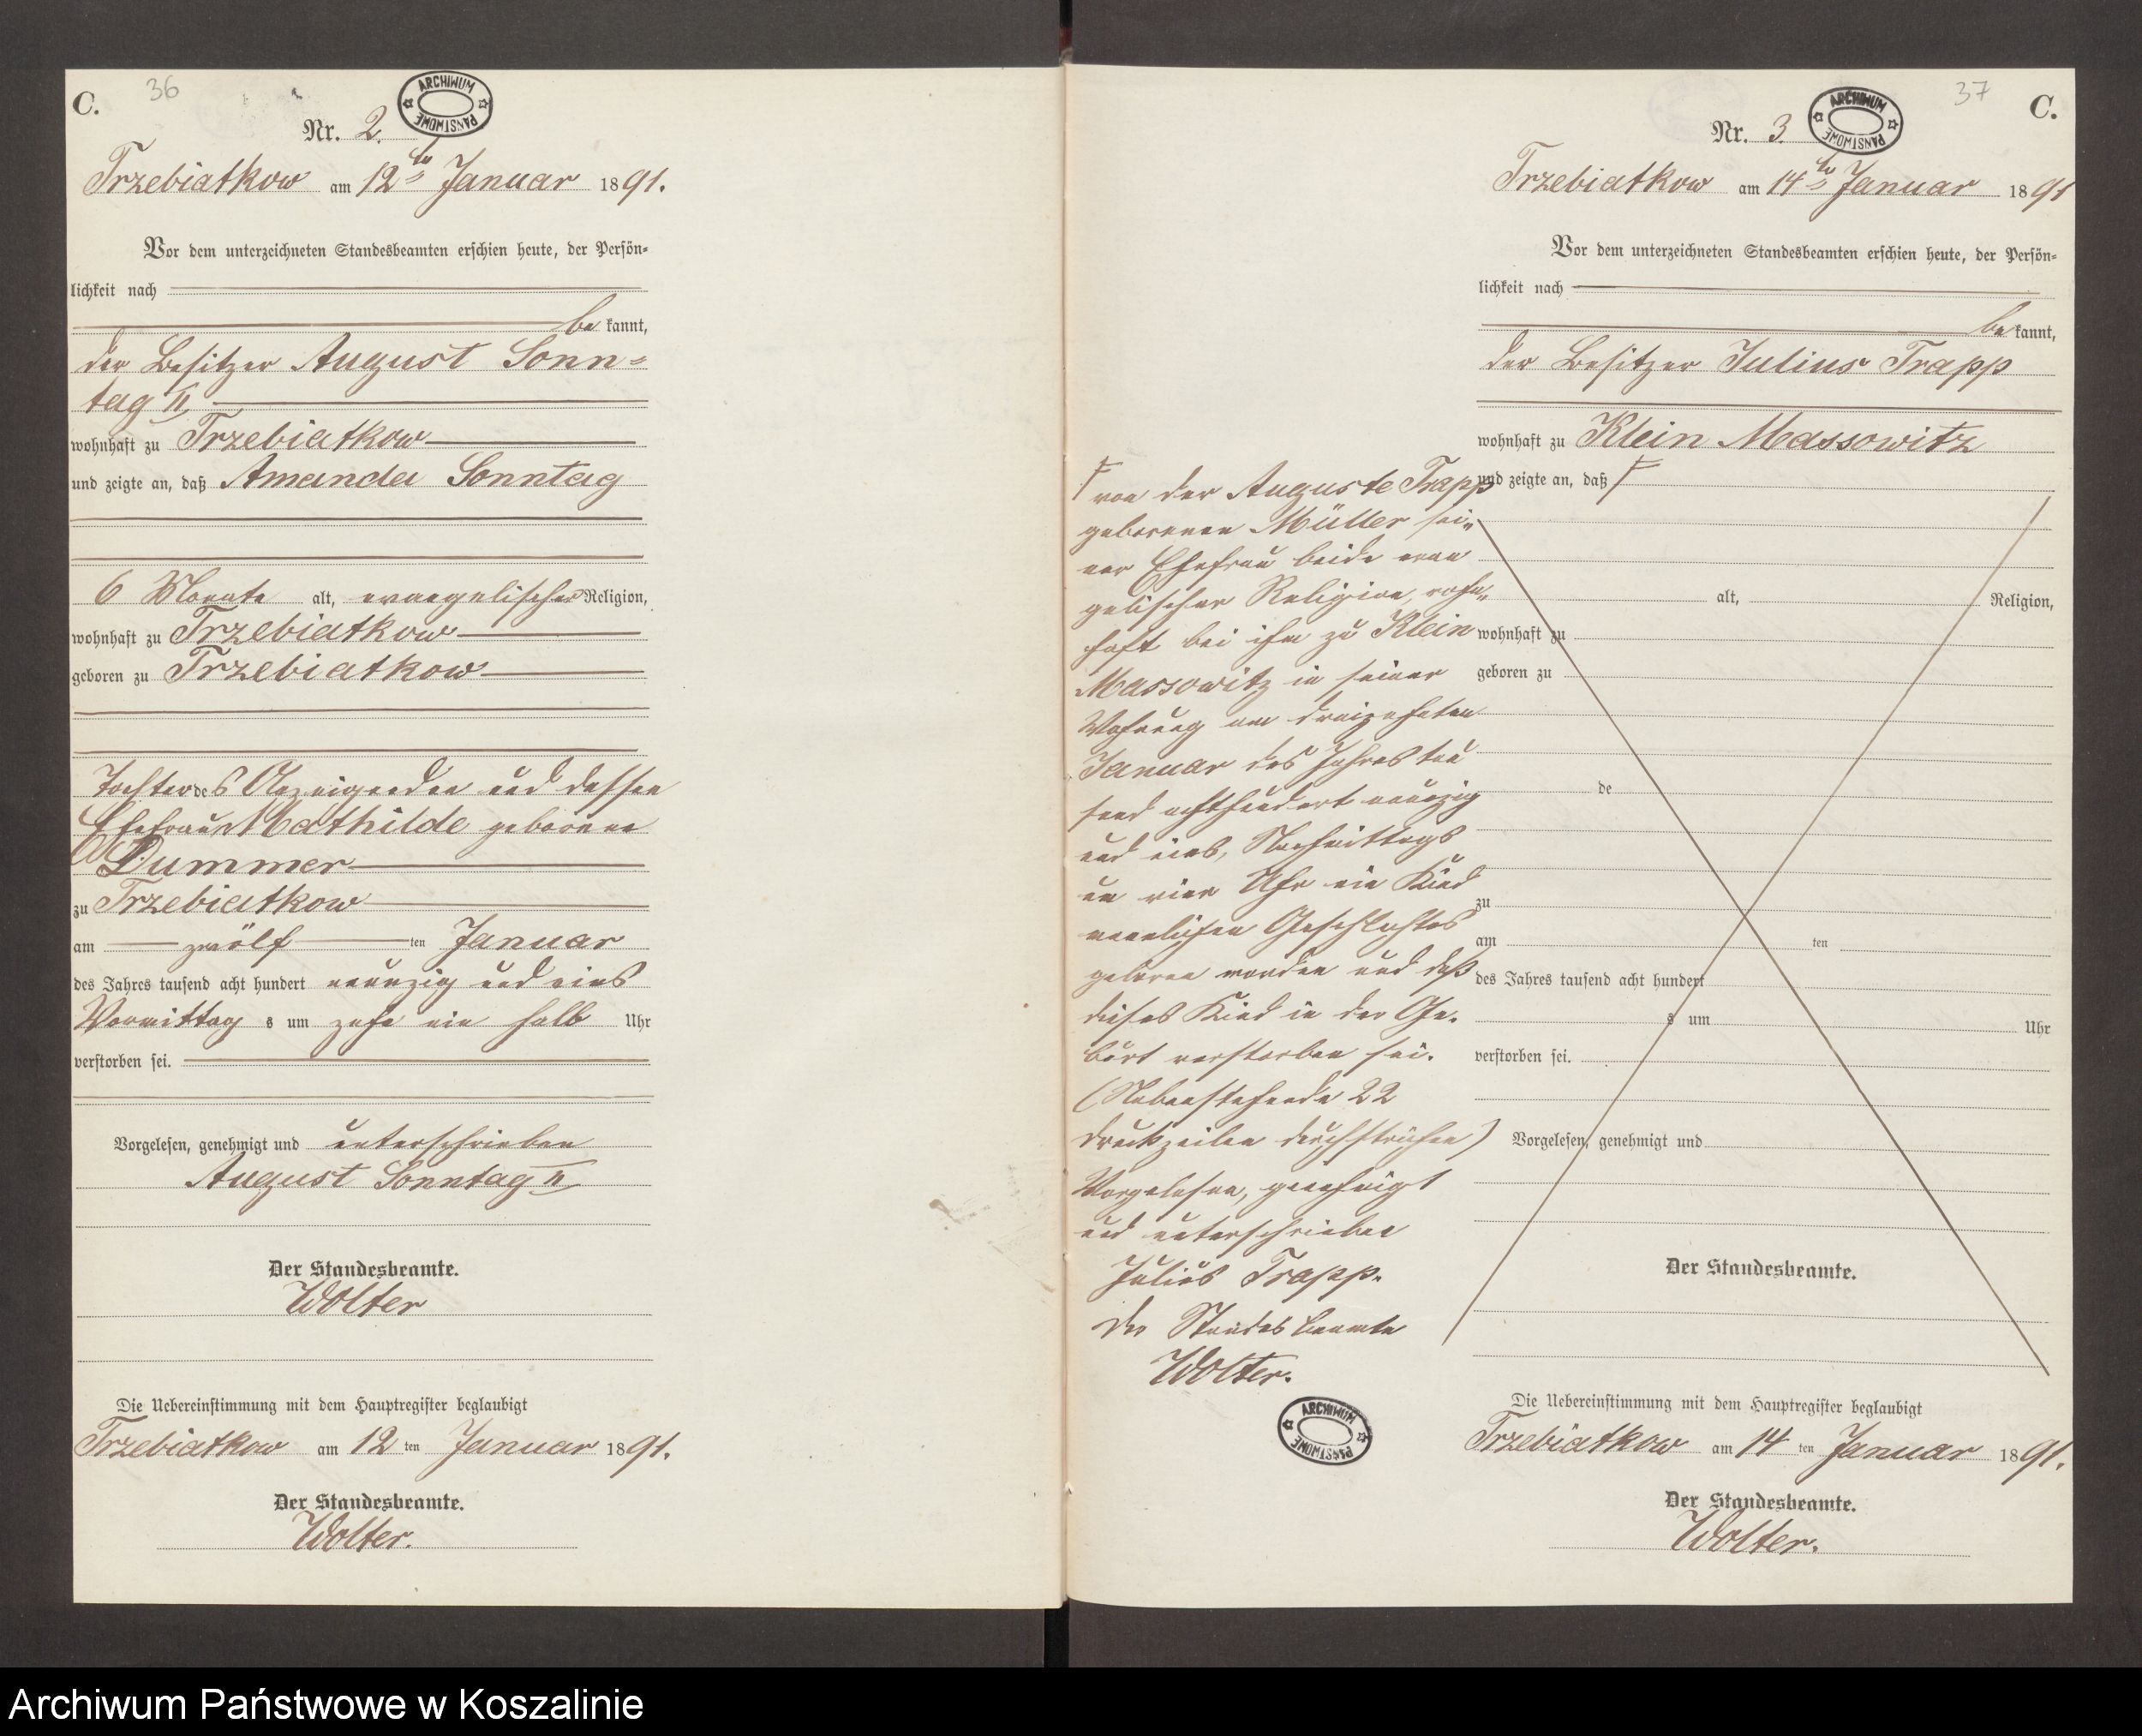 C.
36
ARCHIWUM PAŃSTWOWE
Nr. 2.
Trzebiatkow am 12ten Januar 1891.
Vor dem unterzeichneten Standesbeamten erschien heute, der Persön-
lichkeit nach
be kannt,
der Besitzer August Sonn-
tag II
wohnhaft zu Trzebiatkow
und zeigte an, daß Amanda Sonntag
6 Monate alt, evangelischer Religion,
wohnhaft zu Trzebiatkow
geboren zu Trzebiatkow
Tochter des Anzeigenden und dessen
Ehefrau Mathilde geborene
Dummer
zu Trzebiatkow
am zwölf ten Januar
des Jahres tausend acht hundert neunzig und eins
Vormittag s um zehn ein halb Uhr
verstorben sei.
Vorgelesen, genehmigt und unterschrieben
August Sonntag II
Der Standesbeamte.
Wolter
Die Uebereinstimmung mit dem Hauptregister beglaubigt
Trzebiatkow am 12 ten Januar 1891.
Der Standesbeamte.
Wolter.
37
C.
ARCHIWUM PAŃSTWOWE
Nr. 3.
Trzebiatkow am 14ten Januar 1891
Vor dem unterzeichneten Standesbeamten erschien heute, der Persön-
lichkeit nach
be kannt,
der Besitzer Julius Trapp
wohnhaft zu Klein Massowitz
und zeigte an, daß
alt, Religion,
wohnhaft zu
geboren zu
de
zu
am ten
des Jahres tausend acht hundert
s um Uhr
verstorben sei.
Vorgelesen, genehmigt und
Der Standesbeamte.
von der Auguste Trapp
geborenen Müller sei-
ner Ehefrau beide evan
gelischer Religion, wohn-
haft bei ihm zu Klein
Massowitz in seiner
Wohnung am dreizehnten
Januar des Jahres tau
send achthundert neunzig
und eins, Nachmittags
um vier Uhr ein Kind
maenlichen Geschlechtes
geboren worden und daß
dieses Kind in der Ge-
burt verstorben sei.
(Nebenstehende 22
Druckzeilen durchstrichen)
Vorgelesen, genehmigt
und unterschrieben
Julius Trapp.
Der Standesbeamte
Wolter.
ARCHIWUM PAŃSTWOWE
Die Uebereinstimmung mit dem Hauptregister beglaubigt
Trzebiatkow am 14 ten Januar 1891.
Der Standesbeamte.
Wolter.
Archiwum Państwowe w Koszalinie